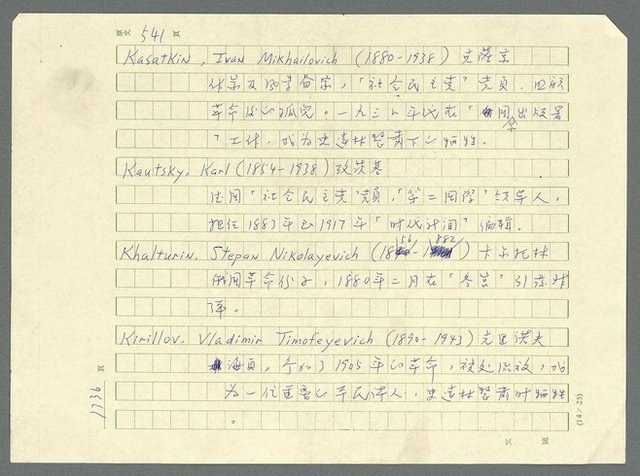 原文 541 頁
Kasatkin, Ivan Mikhailovich (1880-1938) 克薩京
作家及 「社会民主党」党員,
革命後的 一九三 年代在「 国家出版署
」工作. 成为史達林整肅下的牺牲.
Kautsky, Karl (1854-1938) 攷茨基
德国「社会民主党」党員,「第二国際」領导人,
担任1883年至1917年「时代 」编辑.
Khalturin, Stepan Nikolayevich (1856-1882) 卡 托林
俄国革命份子, 1880年二月在「冬宮」引荿炸
弹.
Kirillov, Vladimir Timofeyevich (1890-1943) 克里洛夫
海員, 参加了1905年的革命, 被处流放, 
为一位重要的平民詩人, 史達林整肅时牺牲
.
1736 頁
(14×25)
文 稿